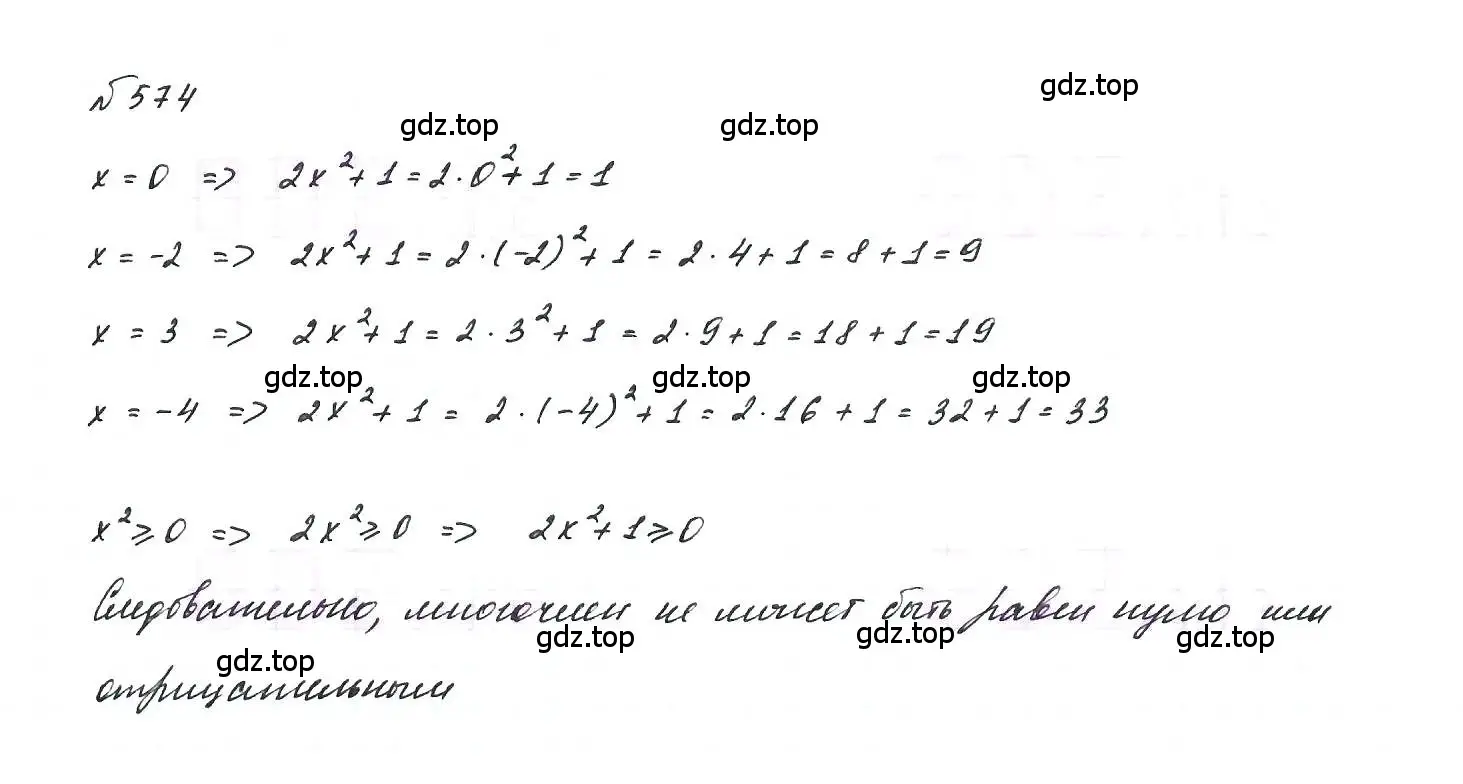 № 574
gdz.top
gdz.top gdz.top
x = 0 => 2x² + 1 = 2 · 0² + 1 = 1
x = -2 => 2x² + 1 = 2 · (-2)² + 1 = 2 · 4 + 1 = 8 + 1 = 9
x = 3 => 2x² + 1 = 2 · 3² + 1 = 2 · 9 + 1 = 18 + 1 = 19
gdz.top gdz.top gdz.top
x = -4 => 2x² + 1 = 2 · (-4)² + 1 = 2 · 16 + 1 = 32 + 1 = 33
x² ⩾ 0 => 2x² ⩾ 0 => 2x² + 1 ⩾ 0
Следовательно, многочлен не может быть равен нулю или
gdz.top gdz.top gdz.top
gdz.top
отрицательным